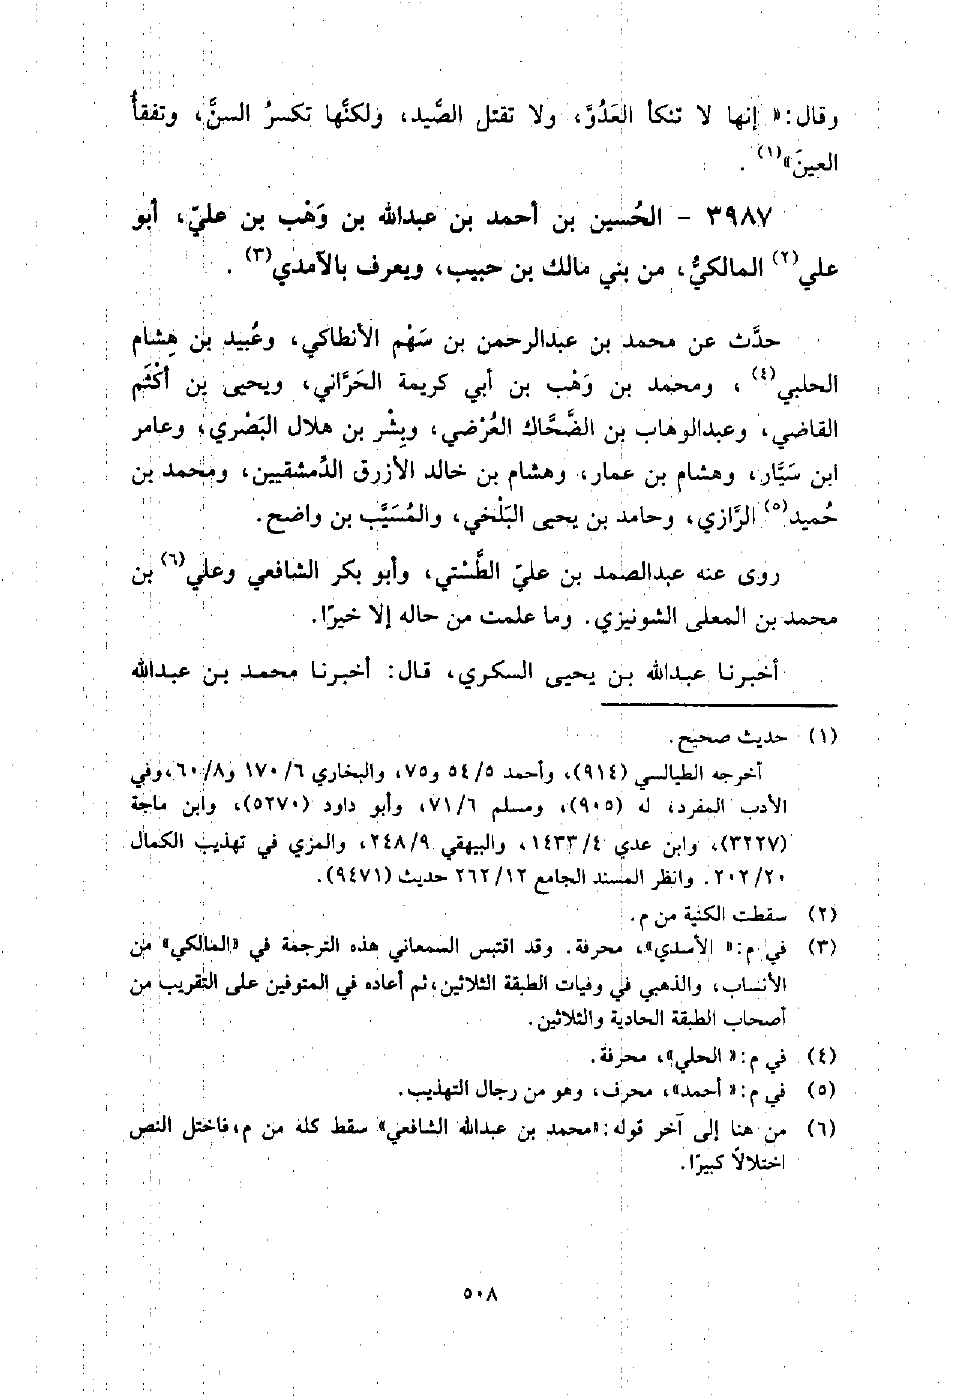 وقال: «إنها لا تنكأ العَدُوَّ، ولا تقتل الصَّيد، ولكنَّها تكسرُ السنَّ، وتفقأُ
العينَ»(١) .
٣٩٨٧ - الحُسين بن أحمد بن عبدالله بن وَهْب بن عليّ، أبو
علي(٢) المالكيُّ، من بني مالك بن حبيب، ويعرف بالآمدي(٣) .
حدَّث عن محمد بن عبدالرحمن بن سَهْم الأنطاكي، وعُبيد بن هِشام
الحلبي(٤) ، ومحمد بن وَهْب بن أبي كريمة الحَرَّاني، ويحيى بن أكْثَم
القاضي، وعبدالوهاب بن الضَّحَّاك العُرْضي، وبِشْر بن هلال البَصْري، وعامر
ابن سَيَّار، وهشام بن عمار، وهشام بن خالد الأزرق الدِّمشقيين، ومحمد بن
حُميد(٥) الرَّازي، وحامد بن يحيى البَلْخي، والمُسَيَّب بن واضح.
روى عنه عبدالصمد بن عليّ الطَّسْتي، وأبو بكر الشافعي وعلي(٦) بن
محمد بن المعلى الشونيزي. وما علمت من حاله إلا خيرًا.
أخبرنا عبدالله بن يحيى السكري، قال: أخبرنا محمد بن عبدالله
(١) حديث صحيح.
أخرجه الطيالسي (٩١٤)، وأحمد ٥/ ٥٤ و٧٥، والبخاري ٦/ ١٧٠ و٨/ ٦٠، وفي
الأدب المفرد، له (٩٠٥)، ومسلم ٦/ ٧١، وأبو داود (٥٢٧٠)، وابن ماجة
(٣٢٢٧)، وابن عدي ٤/ ١٤٣٣، والبيهقي ٩/ ٢٤٨، والمزي في تهذيب الكمال
٢٠/ ٢٠٢. وانظر المسند الجامع ١٢/ ٢٦٢ حديث (٩٤٧١).
(٢) سقطت الكنية من م.
(٣) في م: «الأسدي»، محرفة. وقد اقتبس السمعاني هذه الترجمة في «المالكي» من
الأنساب، والذهبي في وفيات الطبقة الثلاثين، ثم أعاده في المتوفين على التقريب من
أصحاب الطبقة الحادية والثلاثين.
(٤) في م: «الحلي»، محرفة.
(٥) في م: «أحمد»، محرف، وهو من رجال التهذيب.
(٦) من هنا إلى آخر قوله: «محمد بن عبدالله الشافعي» سقط كله من م، فاختل النص
اختلالاً كبيرًا.
٥٠٨